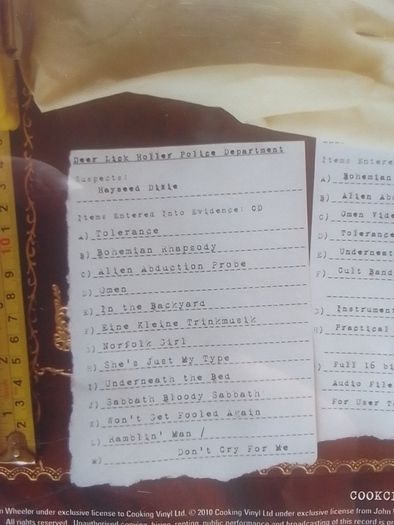 Deer Lick Holler Police Department
Suspects:
Hayseed Dixie
Items Entered Into Evidence: CD
A) Tolerance
B) Bohemian Rhapsody
C) Alien Abduction Probe
D) Omen
E) In the Backyard
F) Eine Kleine Trinkmusik
G) Norfolk Girl
H) She's Just My Type
I) Underneath the Bed
J) Sabbath Bloody Sabbath
K) Won't Get Fooled Again
L) Ramblin' Man /
M) Don't Cry For Me
Items Entere
A) Bohemian
B) Alien Ab
C) Omen Vide
D) Tolerance
E) Underneat
F) Cult Band
G) Instrument
H) Practical
I) Full 16 bi
Audio File
For User T
COOKC
n Wheeler under exclusive license to Cooking Vinyl Ltd. © 2010 Cooking Vinyl Ltd under exclusive license from John
All rights reserved. Unauthorised copying, hiring, renting, public performance and broadcasting of this record is